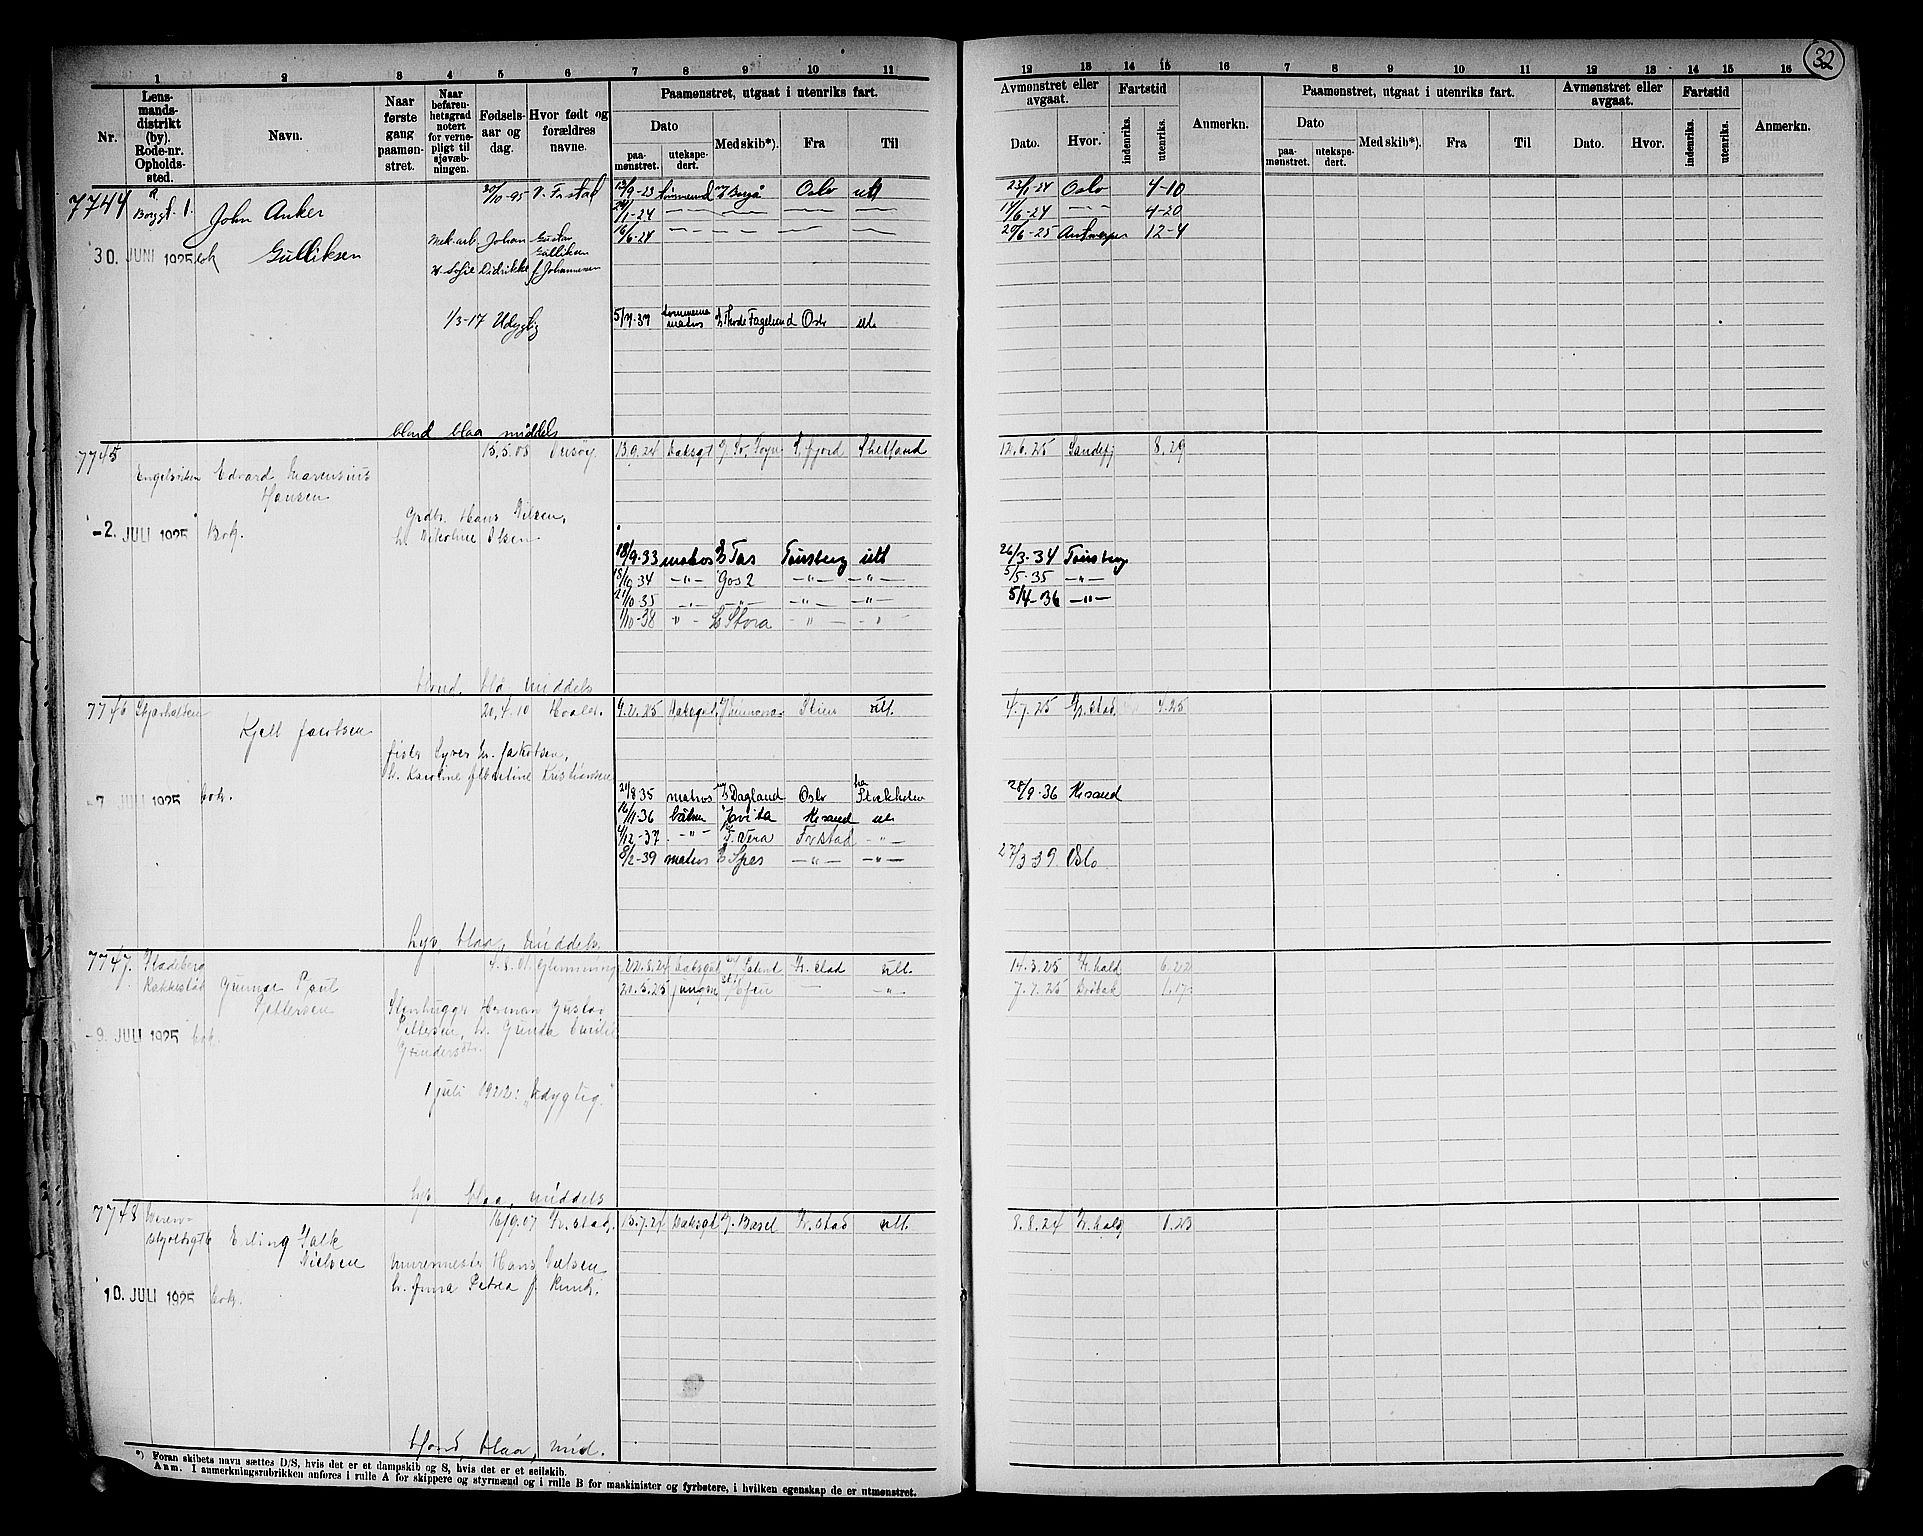 32
1 2 3 4 5 6 7 8 9 10 11
12 13 14 15 16 7 8 9 10 11 12 13 14 15 16
Nr.
Lens-
mands-
distrikt
(by).
Rode-nr.
Opholds-
sted.
Navn.
Naar
første
gang
paamøn-
stret.
Naar
befaren-
hetsgrad
notert
for verne-
pligt til
sjøvæb-
ningen.
Fødsels-
aar og
dag.
Hvor født og
forældres
navne.
Paamønstret, utgaat i utenriks fart.
Dato
paa-
mønstret.
utekspe-
dert.
Med skib*).
Fra
Til
Avmønstret eller
avgaat.
Dato.
Hvor.
Fartstid
indenriks.
utenriks.
Anmerkn.
Paamønstret, utgaat i utenriks fart.
Dato
paa-
mønstret.
utekspe-
dert.
Med skib*).
Fra
Til
Avmønstret eller
avgaat.
Dato.
Hvor.
Fartstid
indenriks.
utenriks.
Anmerkn.
7744 John Anker 30/10-95 Fr.stad 13/9-23 tømmerm Oslo utl 23/1-24 Oslo 4-10
24/1-24 — — — — 14/6-24 — 4-20
Mek.arb. Johan Gustav 16/6-24 — — — — 29/6-25 Antwerpen 12-4
30. JUNI 1925 bok Gulliksen Gulliksen
Sofie Didrikke f. Johannesen
1/3-17 Udygtig 5/9-39 tømmerm.
matros Thode Fagelund Oslo utl.
blond blaa middels
7745 15.5.08 Onsøy 13.9.24 Dæksgt Shetland 12.6.25 Sandefj 8.29
Engelsviken Edvard Marensius
Hansen
Hans Nilsen,
-2. JULI 1925 Bok. h. Nikoline Olsen
18/9-33 matros Tas Tønsberg utl 26/3-34 Tønsberg
18/10-34 —"— Gos 2 —"— —"— 5/5-35 —"—
21/10-35 —"— —"— —"— —"— 5/4-36 —"—
1/10-38 —"— Stora —"— —"—
blond, blå middels
7746 Skjærhalden 20.4.10 Hvaler. 9.2.25 Dæksgut utl. 4.7.25 Fr.stad 4.25
Kjell Jacobsen
fisker Syver Jakobsen,
h. Karoline Albertine Kristiansen
-7. JULI 1925 bok. 21/8 35 matros Dagland Oslo Stockholm 28/9-36 Kr.sand
16/11-36 båtsm Javita Kr.sand utl
4/12-37 —"— Vera Fr.stad —"—
8/2-39 matros Spes —"— —"— 27/3-39 Oslo
lys, blaa, middels
7747. 4.8.01. Glemminge 22.8.24 Dæksgut Fr.stad utl. 14.3.25 Fr.hald 6.22
Rakkestad Gunnar Paul 20.5.25 jungm — —"— 7.7.25 Drøbak 1.17
Pettersen Stenhugger Herman Gustav
Pettersen, h. Gunda Emilie
-9. JULI 1925 bok. Gundersdtr.
1 juli 1922: "Udygtig."
lys blaa, middels
7748 16/9.07 Fr.stad, 15.7.24 Dæksgt Basel Fr.stad utl. 8.8.24 Fr.hald 1.23
Erling Falk
Nielsen murermester Hans Nielsen
h. Anna Petrea f. Kund.
10. JULI 1925 bok.
blond blaa, mid.
*) Foran skibets navn sættes D/S, hvis det er et dampskib og S, hvis det er et seilskib.
Anm. I anmerkningsrubrikken anføres i rulle A for skippere og styrmænd og i rulle B for maskinister og fyrbøtere, i hvilken egenskap de er utmønstret.